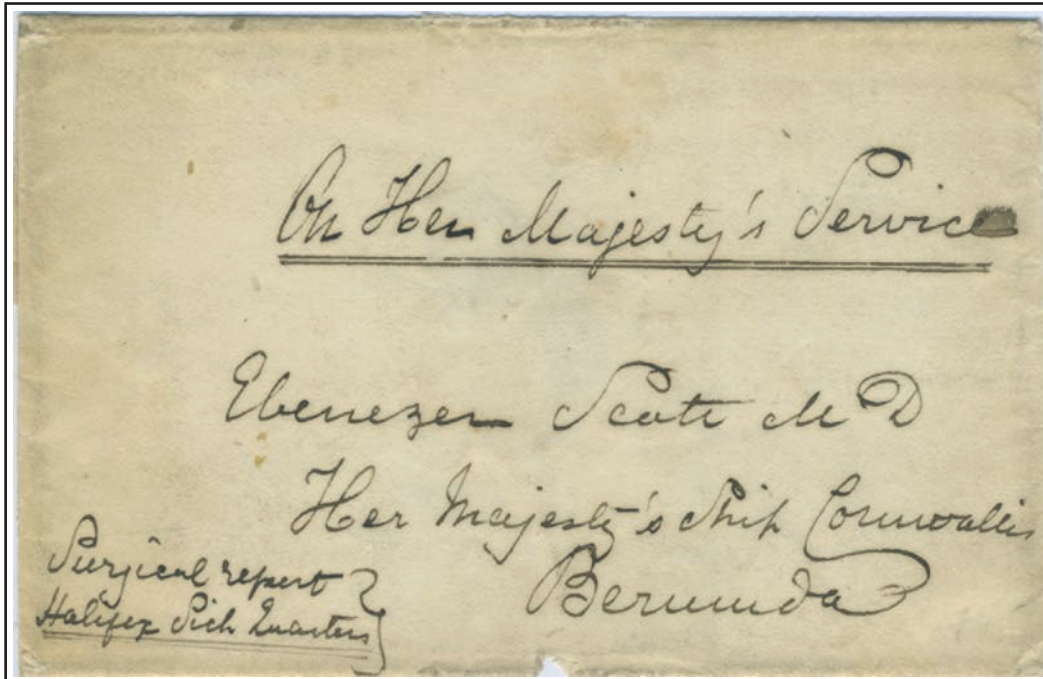 On Her Majesty's Service
Ebenezer Scott M D
Her Majesty's Ship Cornwallis
Bermuda
Surgical report
Halifax Sick Quarters